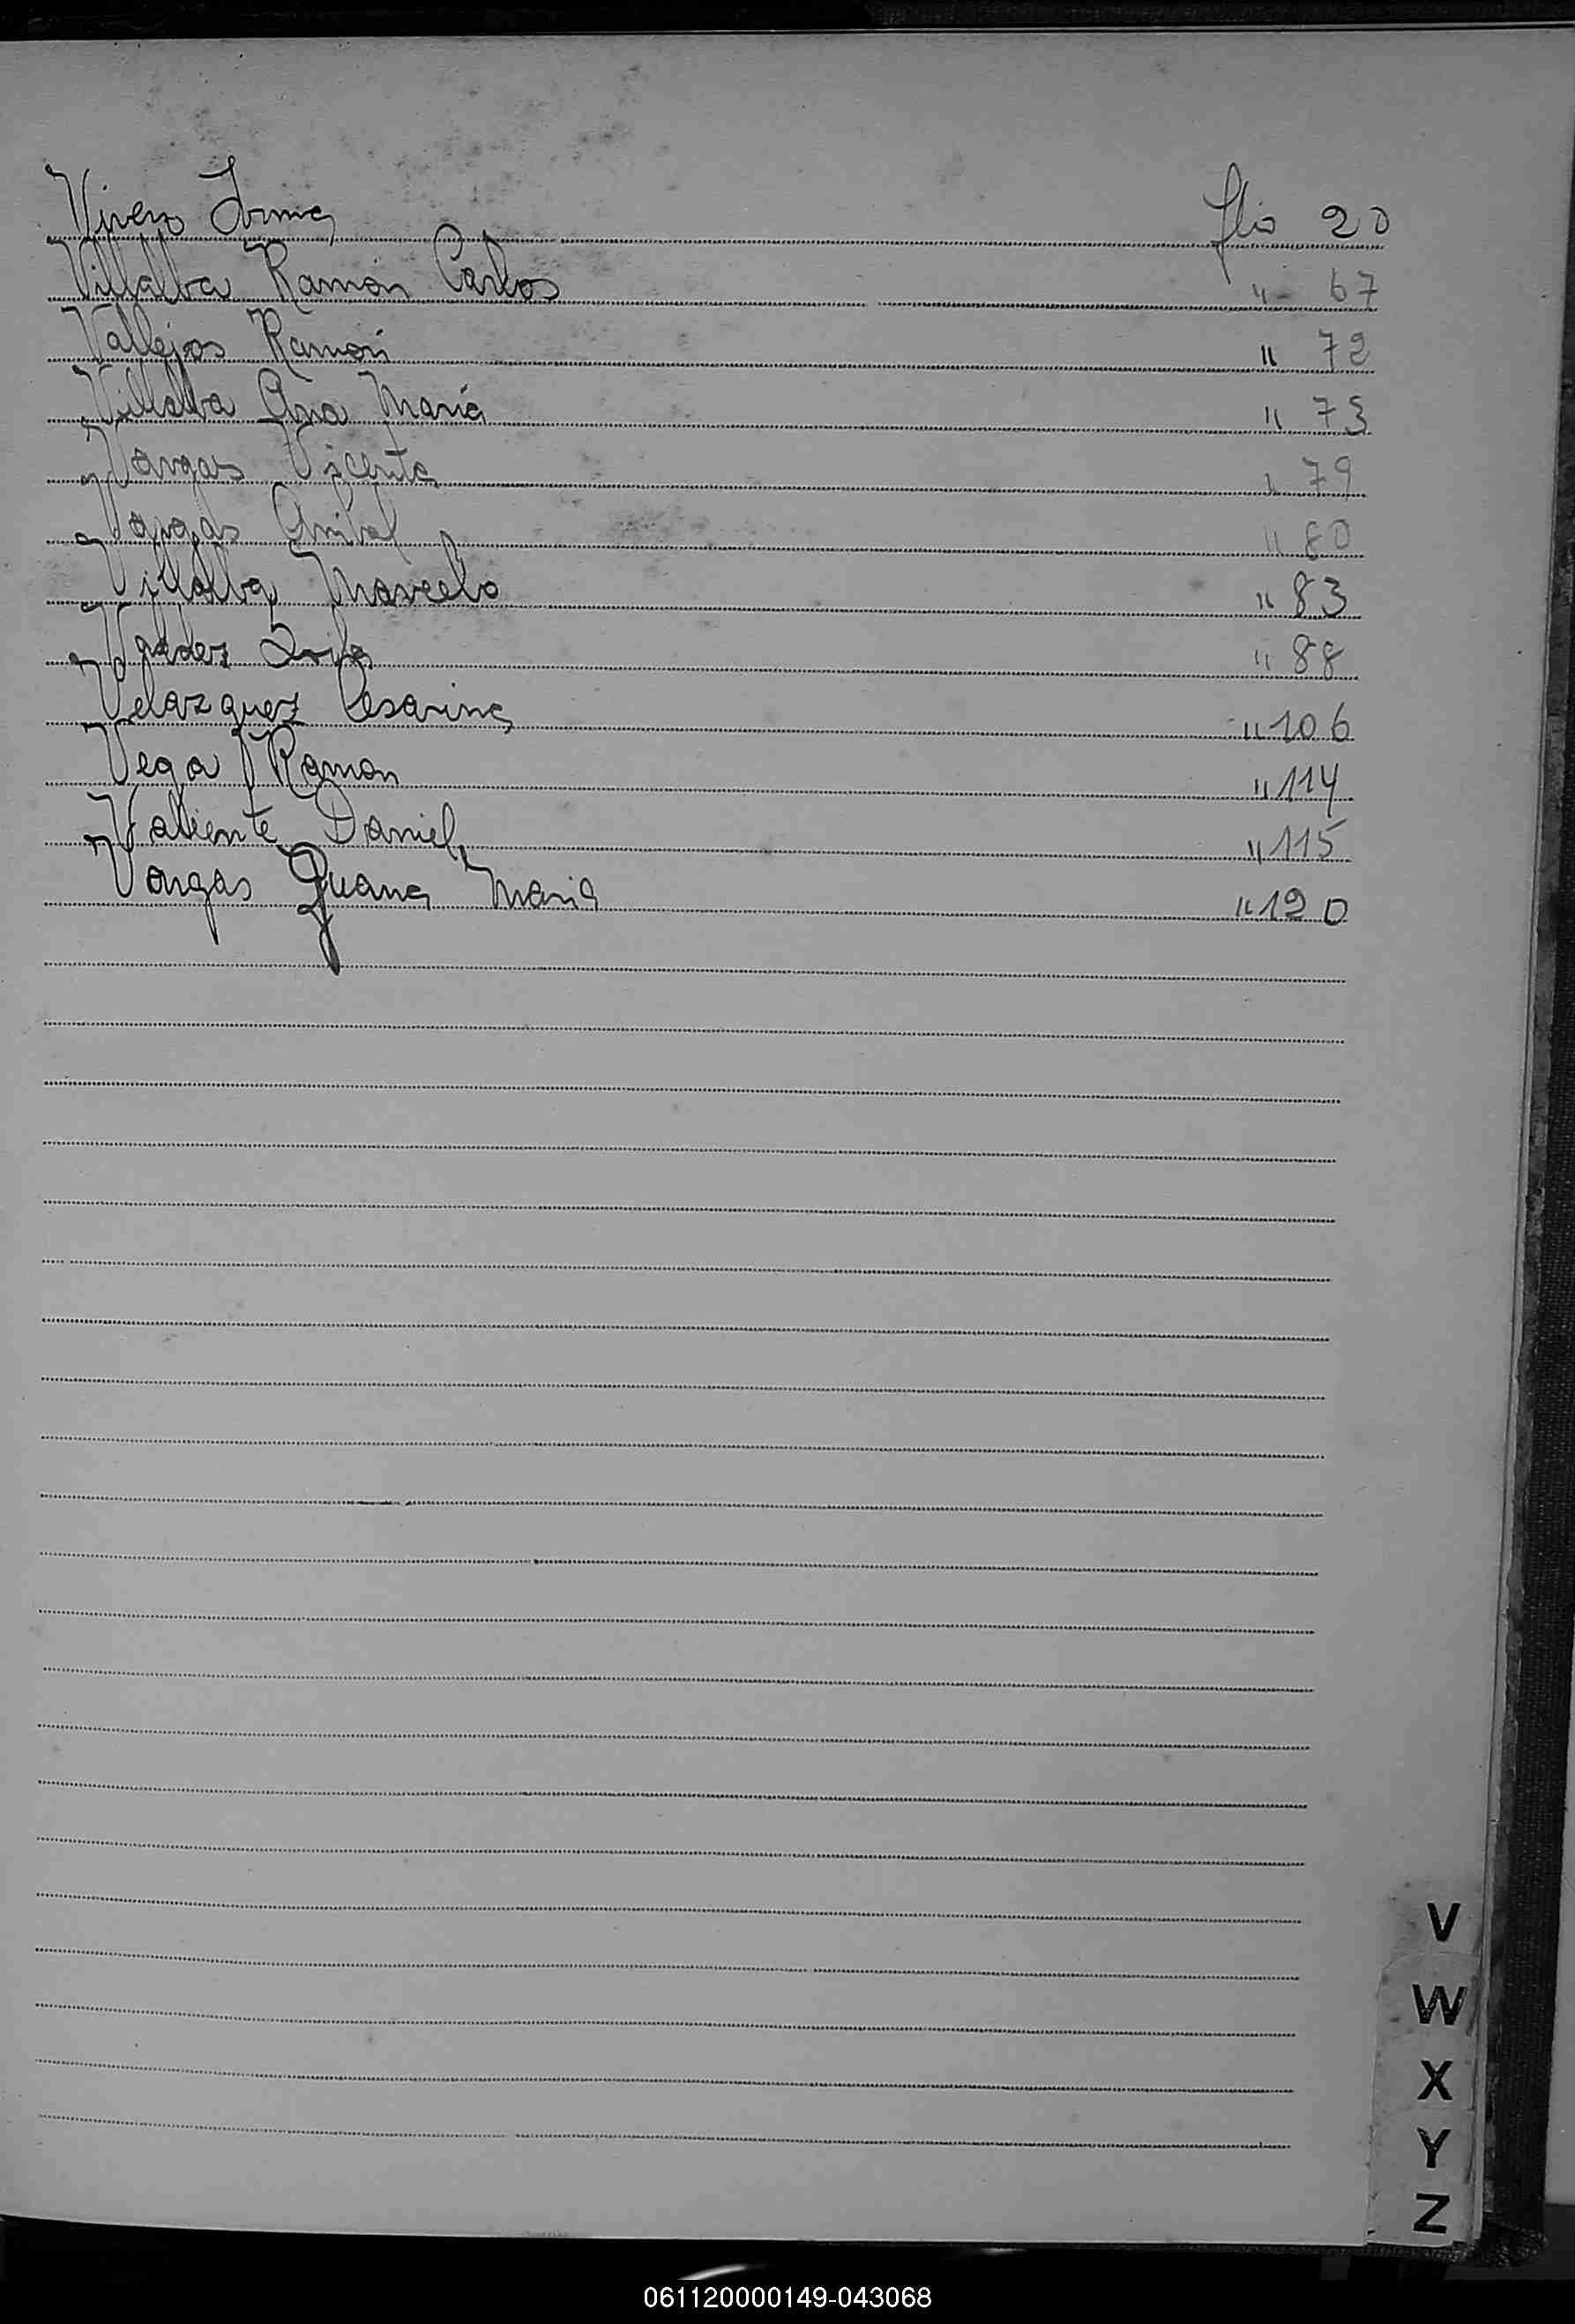 Vivero Irma flio 20
Villalba Ramón Carlos " 67
Vallejos Ramón " 72
Villalba Ana María " 73
Vargas Vicenta " 79
Vargas Anibal " 80
Villalba Marcelo " 83
Valdez " 88
Velazquez Cesarina " 106
Vega Ramon " 114
Valiente Daniel " 115
Vargas Juana Maria " 120
V
W
X
Y
Z
061120000149-043068